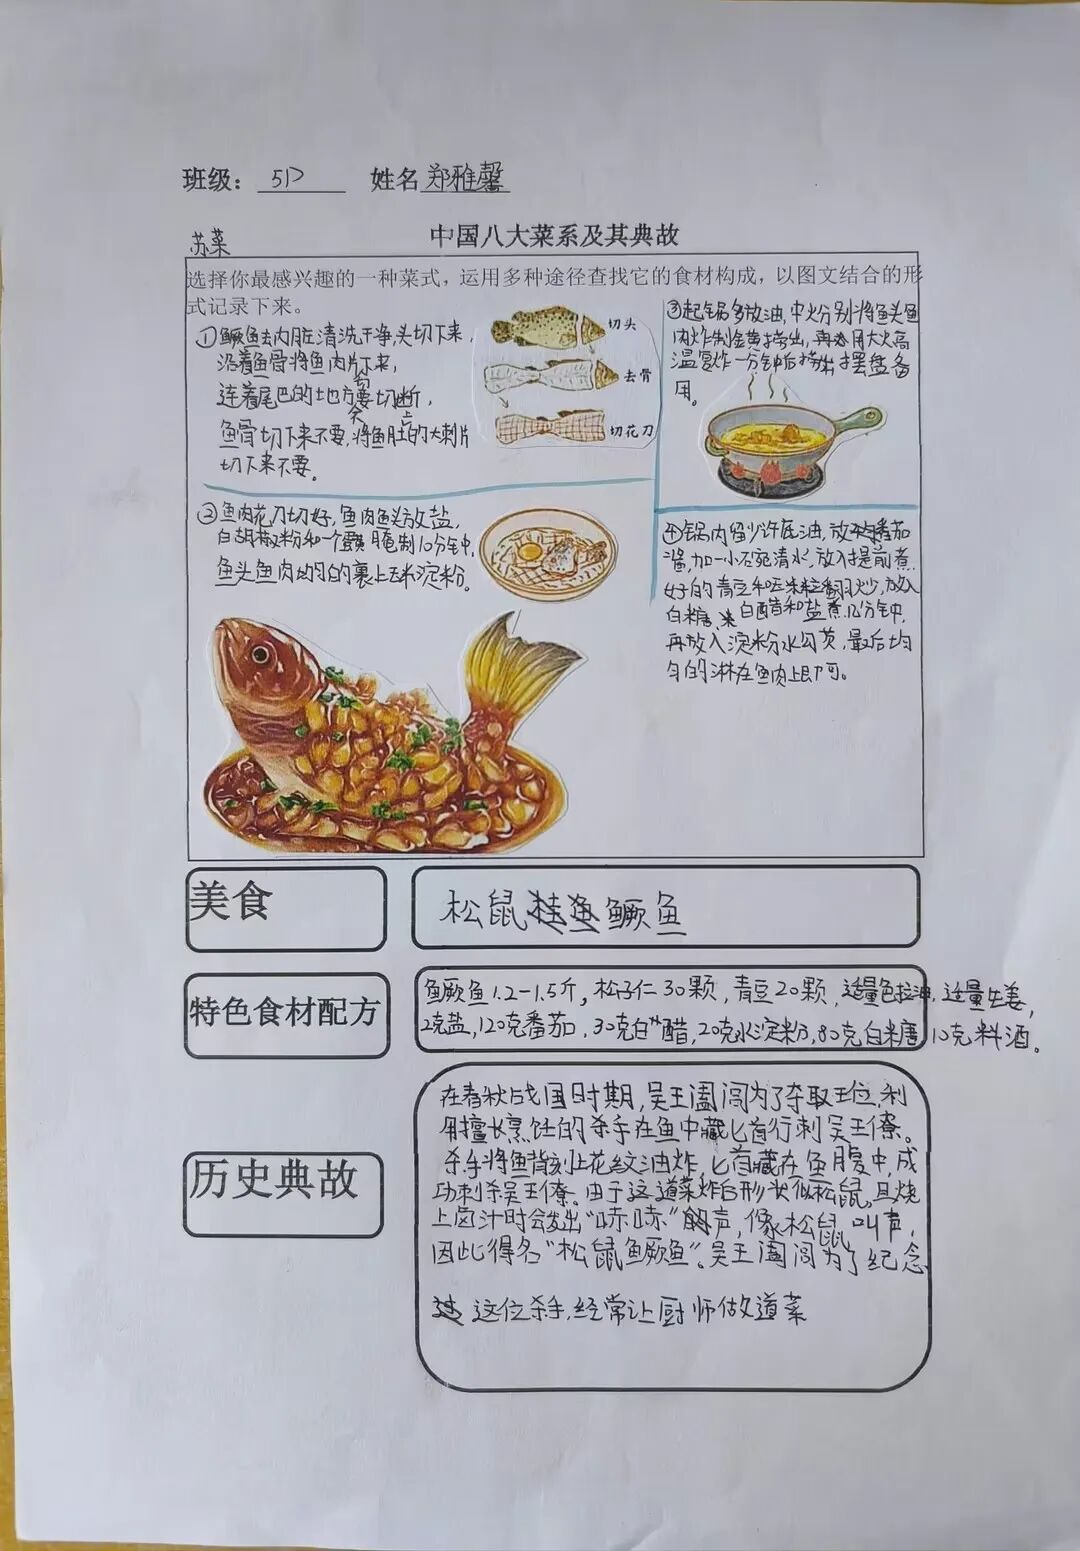 班级： 51P 姓名 郑雅馨
苏菜
中国八大菜系及其典故
选择你最感兴趣的一种菜式，运用多种途径查找它的食材构成，以图文结合的形
式记录下来。
①鳜鱼去内脏清洗干净，头切下来，
沿着鱼骨将鱼肉片下来，
连着尾巴的地方不要切断，
鱼骨切下来不要，将鱼肚上的大刺片
切下来不要。
切头
去骨
切花刀
②鱼肉花刀切好，鱼肉鱼头放盐，
白胡椒粉和一个蛋黄腌制10分钟，
鱼头鱼肉均匀的裹上玉米淀粉。
③起锅多放油，中火分别将鱼头鱼
肉炸制金黄捞出，再用大火高
温复炸一分钟后捞出摆盘备
用。
④锅内留少许底油，放番茄
酱，加一小碗清水，放入提前煮
好的青豆和玉米粒翻炒，放入
白糖，白醋和盐煮几分钟，
再放入淀粉水勾芡，最后均
匀的淋在鱼肉上即可。
美食
松鼠桂鱼鳜鱼
特色食材配方
鳜鱼1.2-1.5斤，松子仁30颗，青豆20颗，适量色拉油，适量生姜，
2克盐，120克番茄，30克白醋，20克水淀粉，80克白糖，10克料酒。
历史典故
在春秋战国时期，吴王阖闾为了夺取王位，利
用擅长烹饪的杀手在鱼中藏匕首行刺吴王僚。
杀手将鱼背刻上花纹油炸，匕首藏在鱼腹中，成
功刺杀吴王僚。由于这道菜炸后形状似松鼠，且烧
上卤汁时会发出“吱吱”的声，像松鼠叫声，
因此得名“松鼠鳜鱼”。吴王阖闾为了纪念
这位杀手，经常让厨师做道菜